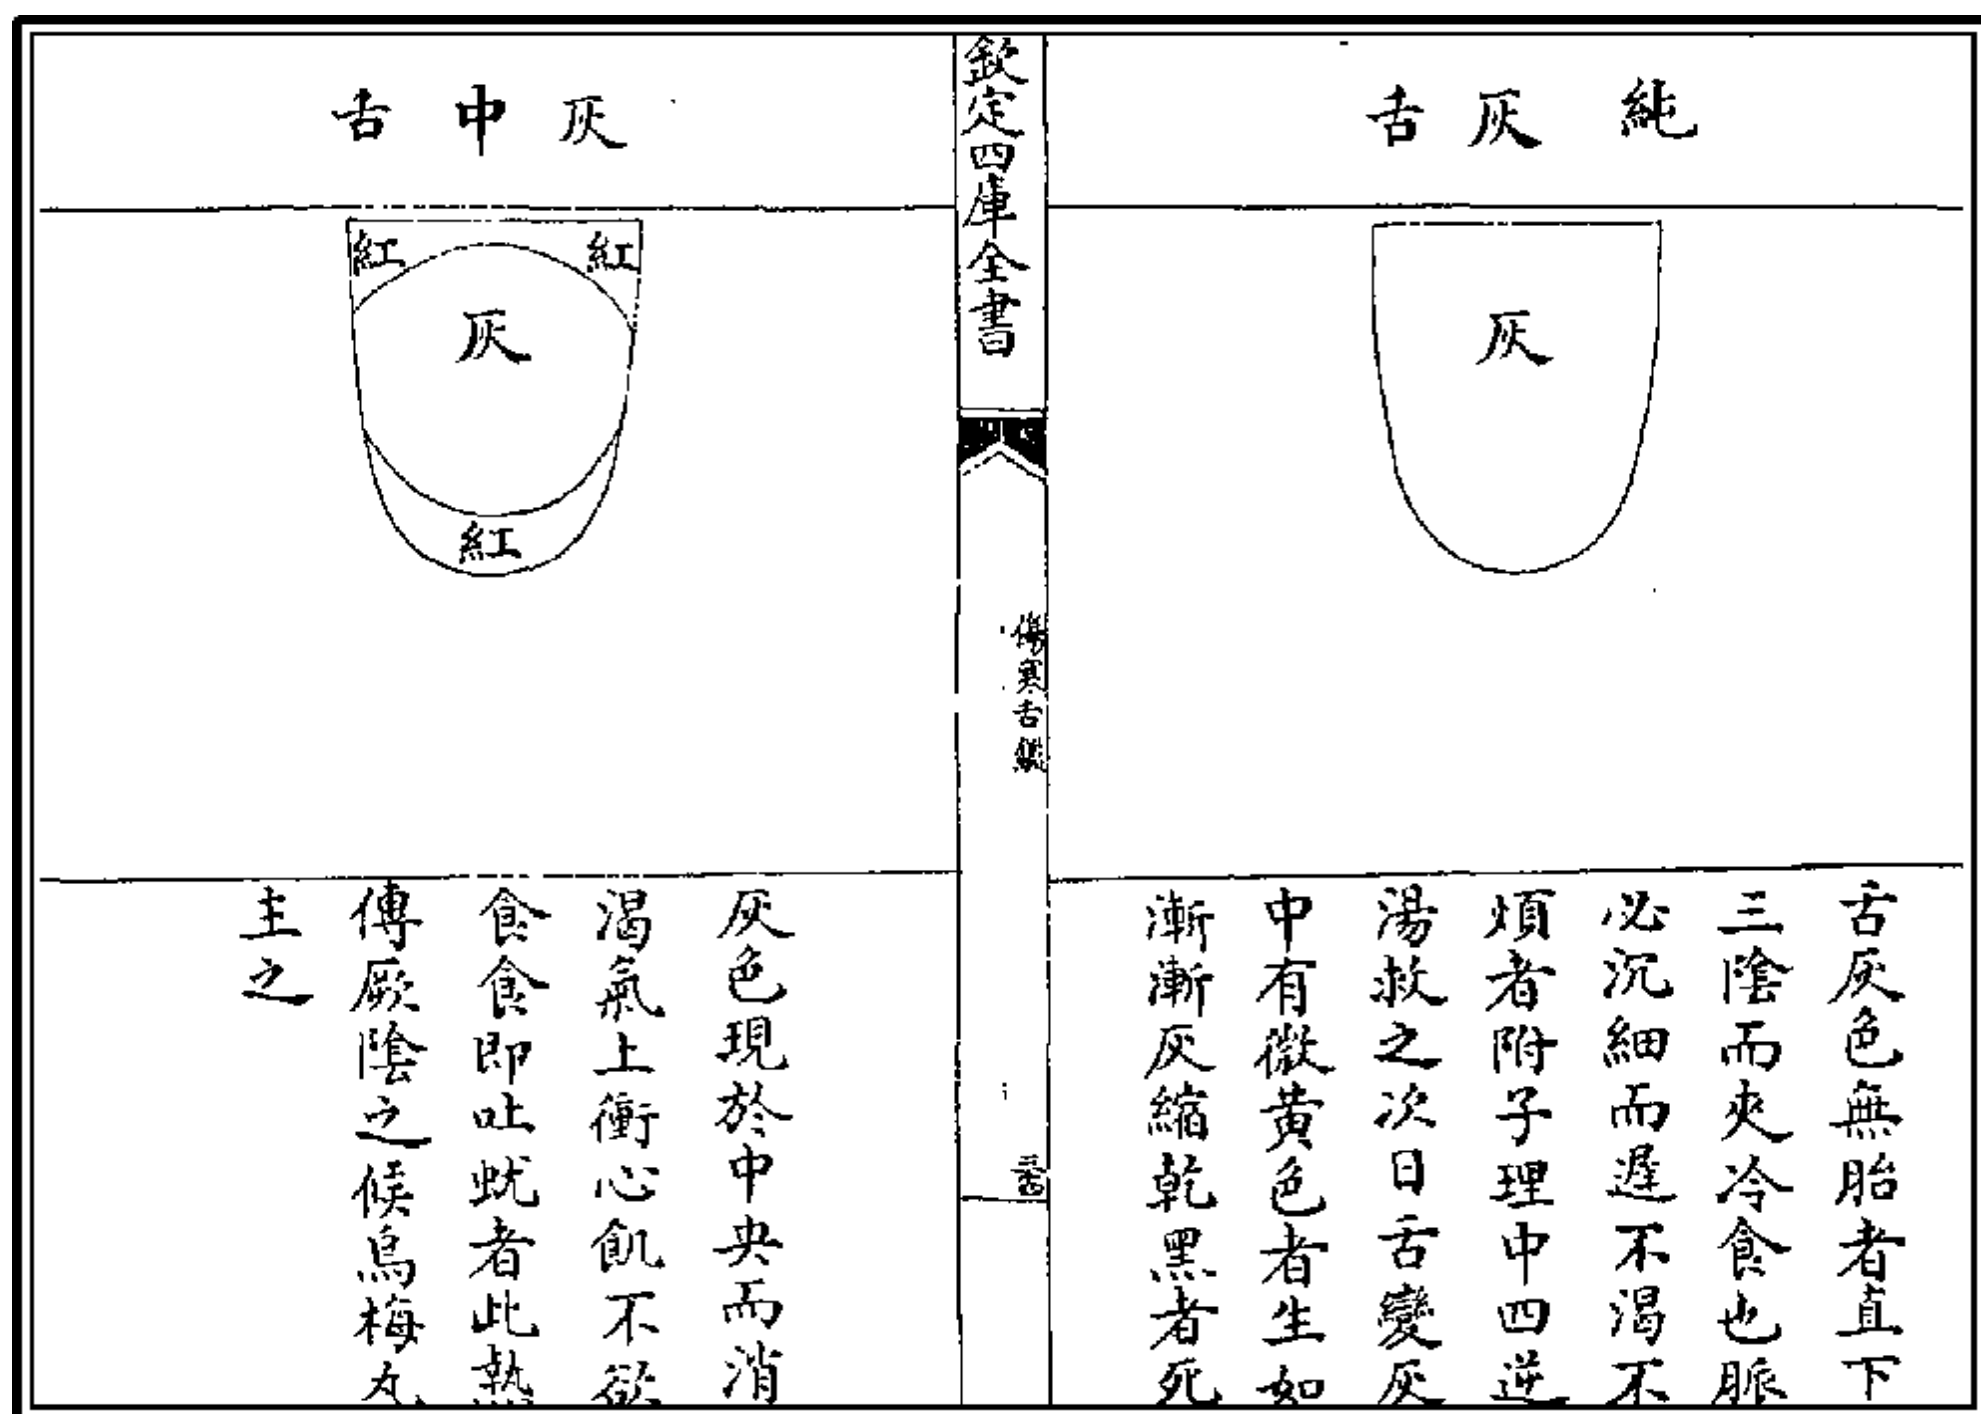 純灰舌
灰
舌灰色無胎者直下
三陰而夾冷食也脈
必沉細而遲不渴不
煩者附子理中四逆
湯救之次日舌變灰
中有微黃色者生如
漸漸灰縮乾黑者死
欽定四庫全書
傷寒舌鑑
灰中舌
紅
紅
灰
紅
灰色現於中央而消
渴氣上衝心飢不欲
食食即吐蚘者此熱
傳厥陰之候烏梅丸
主之